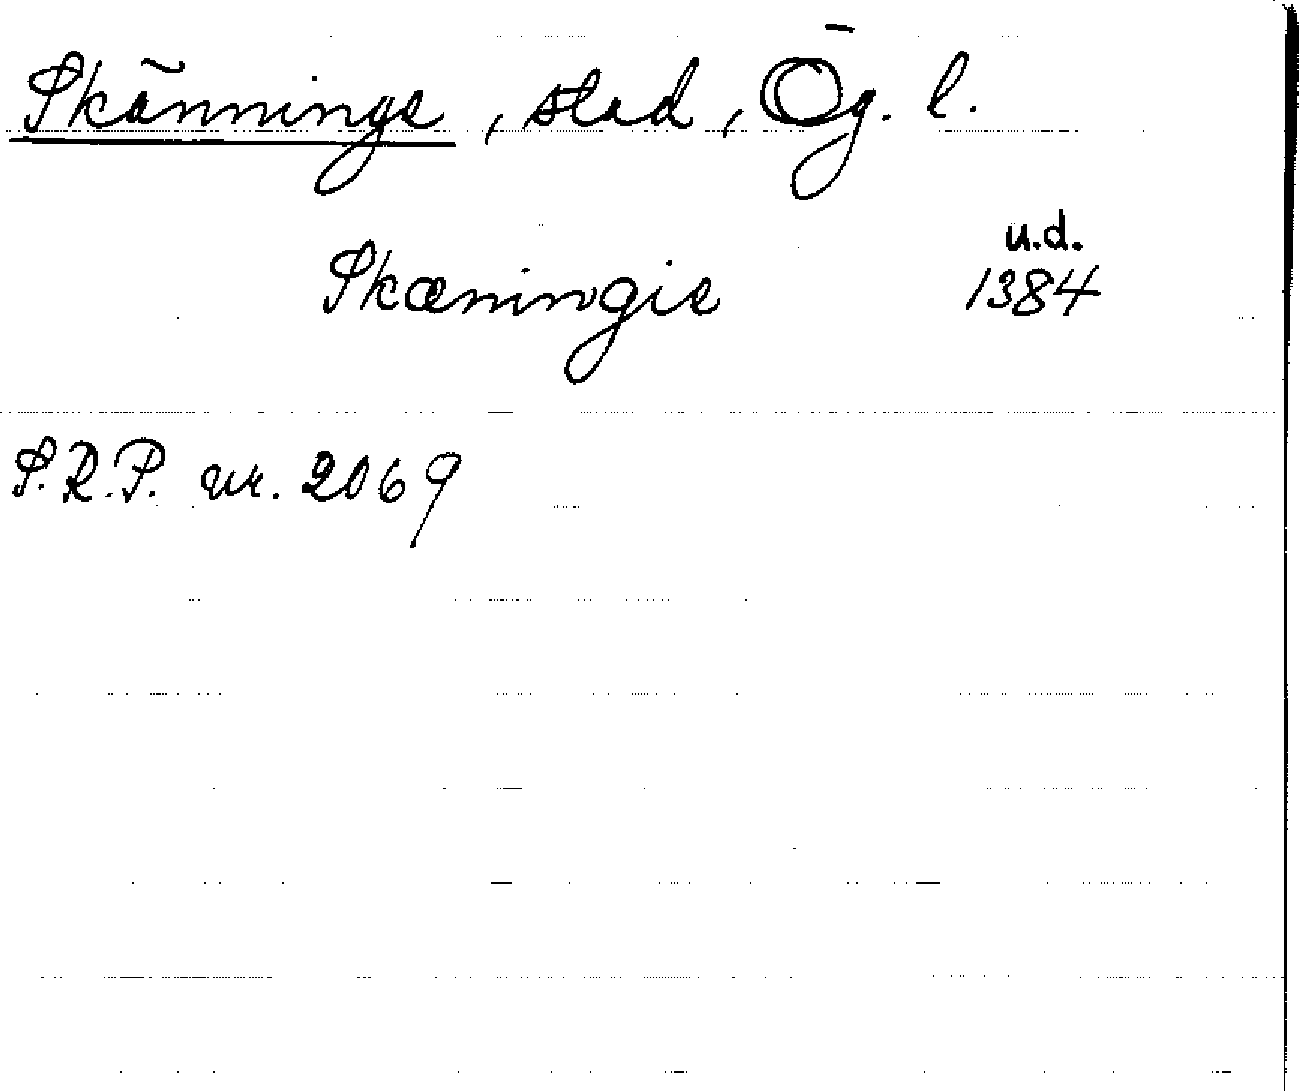 Skänninge, stad, Ög. l.
u.d.
Skæningie 1384
S.R.P. nr. 2069